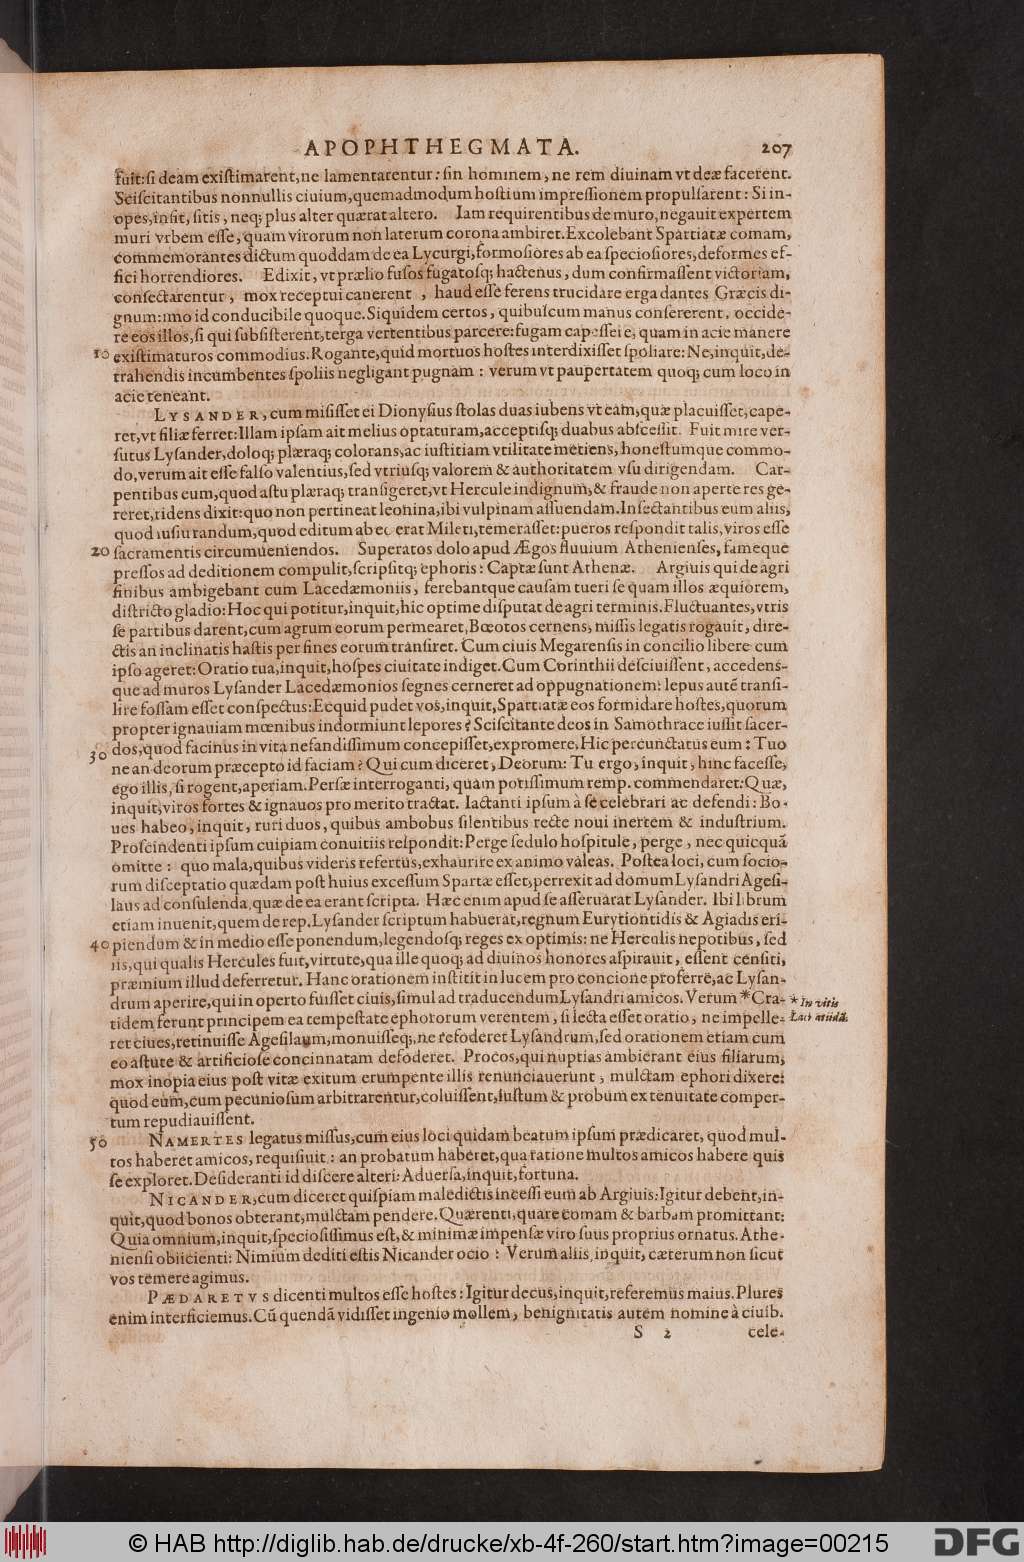 APOPHTHEGMATA. 207
fuit: si deam existimarent, ne lamentarentur: sin hominem, ne rem diuinam vt deæ facerent.
Sciscitantibus nonnullis ciuium, quemadmodum hostium impressionem propulsarent: Si in-
opes, insit, sitis, neq; plus alter quærat altero. Iam requirentibus de muro, negauit expertem
muri vrbem esse, quam virorum non laterum corona ambiret. Excolebant Spartiatæ comam,
commemorantes dictum quoddam de ea Lycurgi, formosiores ab ea speciosiores, deformes ef-
fici horrendiores. Edixit, vt prælio fusos fugatosq; hactenus, dum confirmassent victoriam,
consectarentur, mox receptui canerent, haud esse ferens trucidare erga dantes Græcis di-
gnum: imo id conducibile quoque. Siquidem certos, quibuscum manus consererent, occide-
re eos illos, si qui subsisterent, terga vertentibus parcere: fugam capessere, quam in acie manere
10 existimaturos commodius. Rogante, quid mortuos hostes interdixisset spoliare: Ne, inquit, de-
trahendis incumbentes spoliis negligant pugnam: verum vt paupertatem quoq; cum loco in
acie teneant.
LYSANDER, cum misisset ei Dionysius stolas duas iubens vt eam, quæ placuisset, cape-
ret, vt filiæ ferret: Illam ipsam ait melius optaturam, acceptisq; duabus abscessit. Fuit mire ver-
sutus Lysander, doloq; plæraq; colorans, ac iustitiam vtilitate metiens, honestumque commo-
do, verum ait esse falso valentius, sed vtriusq; valorem & authoritatem vsu dirigendam. Car-
pentibus eum, quod astu plæraq; transigeret, vt Hercule indignum, & fraude non aperte res ge-
reret, ridens dixit: quo non pertineat leonina, ibi vulpinam assuendam. Insectantibus eum aliis,
quod iusiurandum, quod editum ab eo erat Mileti, temerasset: pueros respondit talis, viros esse
20 sacramentis circumueniendos. Superatos dolo apud Ægos fluuium Athenienses, fameque
pressos ad deditionem compulit, scripsitq; ephoris: Captæ sunt Athenæ. Argiuis qui de agri
finibus ambigebant cum Lacedæmoniis, ferebantque causam tueri se quam illos æquiorem,
districto gladio: Hoc qui potitur, inquit, hic optime disputat de agri terminis. Fluctuantes, vtris
se partibus darent, cum agrum eorum permearet, Bœotos cernens, missis legatis rogauit, dire-
ctis an inclinatis hastis per fines eorum transiret. Cum ciuis Megarensis in concilio libere cum
ipso ageret: Oratio tua, inquit, hospes ciuitate indiget. Cum Corinthii desciuissent, accedens-
que ad muros Lysander Lacedæmonios segnes cerneret ad oppugnationem: lepus autē transi-
lire fossam esset conspectus: Ecquid pudet vos, inquit, Spartiatæ eos formidare hostes, quorum
propter ignauiam mœnibus indormiunt lepores? Sciscitante deos in Samothrace iussit sacer-
30 dos, quod facinus in vita nefandissimum concepisset, expromere, Hic percunctatus eum: Tuo
ne an deorum præcepto id faciam? Qui cum diceret, Deorum: Tu ergo, inquit, hinc facesse,
ego illis, si rogent, aperiam. Persæ interroganti, quam potissimum remp. commendaret: Quæ,
inquit, viros fortes & ignauos pro merito tractat. Iactanti ipsum à se celebrari ac defendi: Bo-
ues habeo, inquit, ruri duos, quibus ambobus silentibus recte noui inertem & industrium.
Proscindenti ipsum cuipiam conuitiis respondit: Perge sedulo hospitule, perge, nec quicquā
omitte: quo mala, quibus videris refertus, exhaurire ex animo valeas. Postea loci, cum socio-
rum disceptatio quædam post huius excessum Spartæ esset, perrexit ad domum Lysandri Agesi-
laus ad consulenda, quæ de ea erant scripta. Hæc enim apud se asseruarat Lysander. Ibi librum
etiam inuenit, quem de rep. Lysander scriptum habuerat, regnum Eurytiontidis & Agiadis eri-
40 piendum & in medio esse ponendum, legendosq; reges ex optimis: ne Herculis nepotibus, sed
iis, qui qualis Hercules fuit, virtute, qua ille quoq; ad diuinos honores aspirauit, essent censiti,
præmium illud deferretur. Hanc orationem institit in lucem pro concione proferre, ac Lysan-
drum aperire, qui in operto fuisset ciuis, simul ad traducendum Lysandri amicos. Verum *Cra- * In vitis
tidem ferunt principem ea tempestate ephororum verentem, si lecta esset oratio, ne impelle-
ret ciues, retinuisse Agesilaum, monuisseq;, ne refoderet Lysandrum, sed orationem etiam cum
eo astute & artificiose concinnatam defoderet. Procos, qui nuptias ambierant eius filiarum,
mox inopia eius post vitæ exitum erumpente illis renunciauerunt, mulctam ephori dixere:
quod eum, cum pecuniosum arbitrarentur, coluissent, iustum & probum ex tenuitate comper-
tum repudiauissent.
50 NAMERTES legatus missus, cum eius loci quidam beatum ipsum prædicaret, quod mul-
tos haberet amicos, requisiuit: an probatum haberet, qua ratione multos amicos habere quis
se exploret. Desideranti id discere alteri: Aduersa, inquit, fortuna.
NICANDER, cum diceret quispiam maledictis incessi eum ab Argiuis: Igitur debent, in-
quit, quod bonos obterant, mulctam pendere. Quærenti, quare comam & barbam promittant:
Quia omnium, inquit, speciosissimus est, & minimæ impensæ viro suus proprius ornatus. Athe-
niensi obiicienti: Nimium dediti estis Nicander ocio: Verum aliis, inquit, cæterum non sicut
vos temere agimus.
PÆDARETVS dicenti multos esse hostes: Igitur decus, inquit, referemus maius. Plures
enim interficiemus. Cū quendā vidisset ingenio mollem, benignitatis autem nomine à ciuib.
S 2 cele-
© HAB http://diglib.hab.de/drucke/xb-4f-260/start.htm?image=00215
DFG